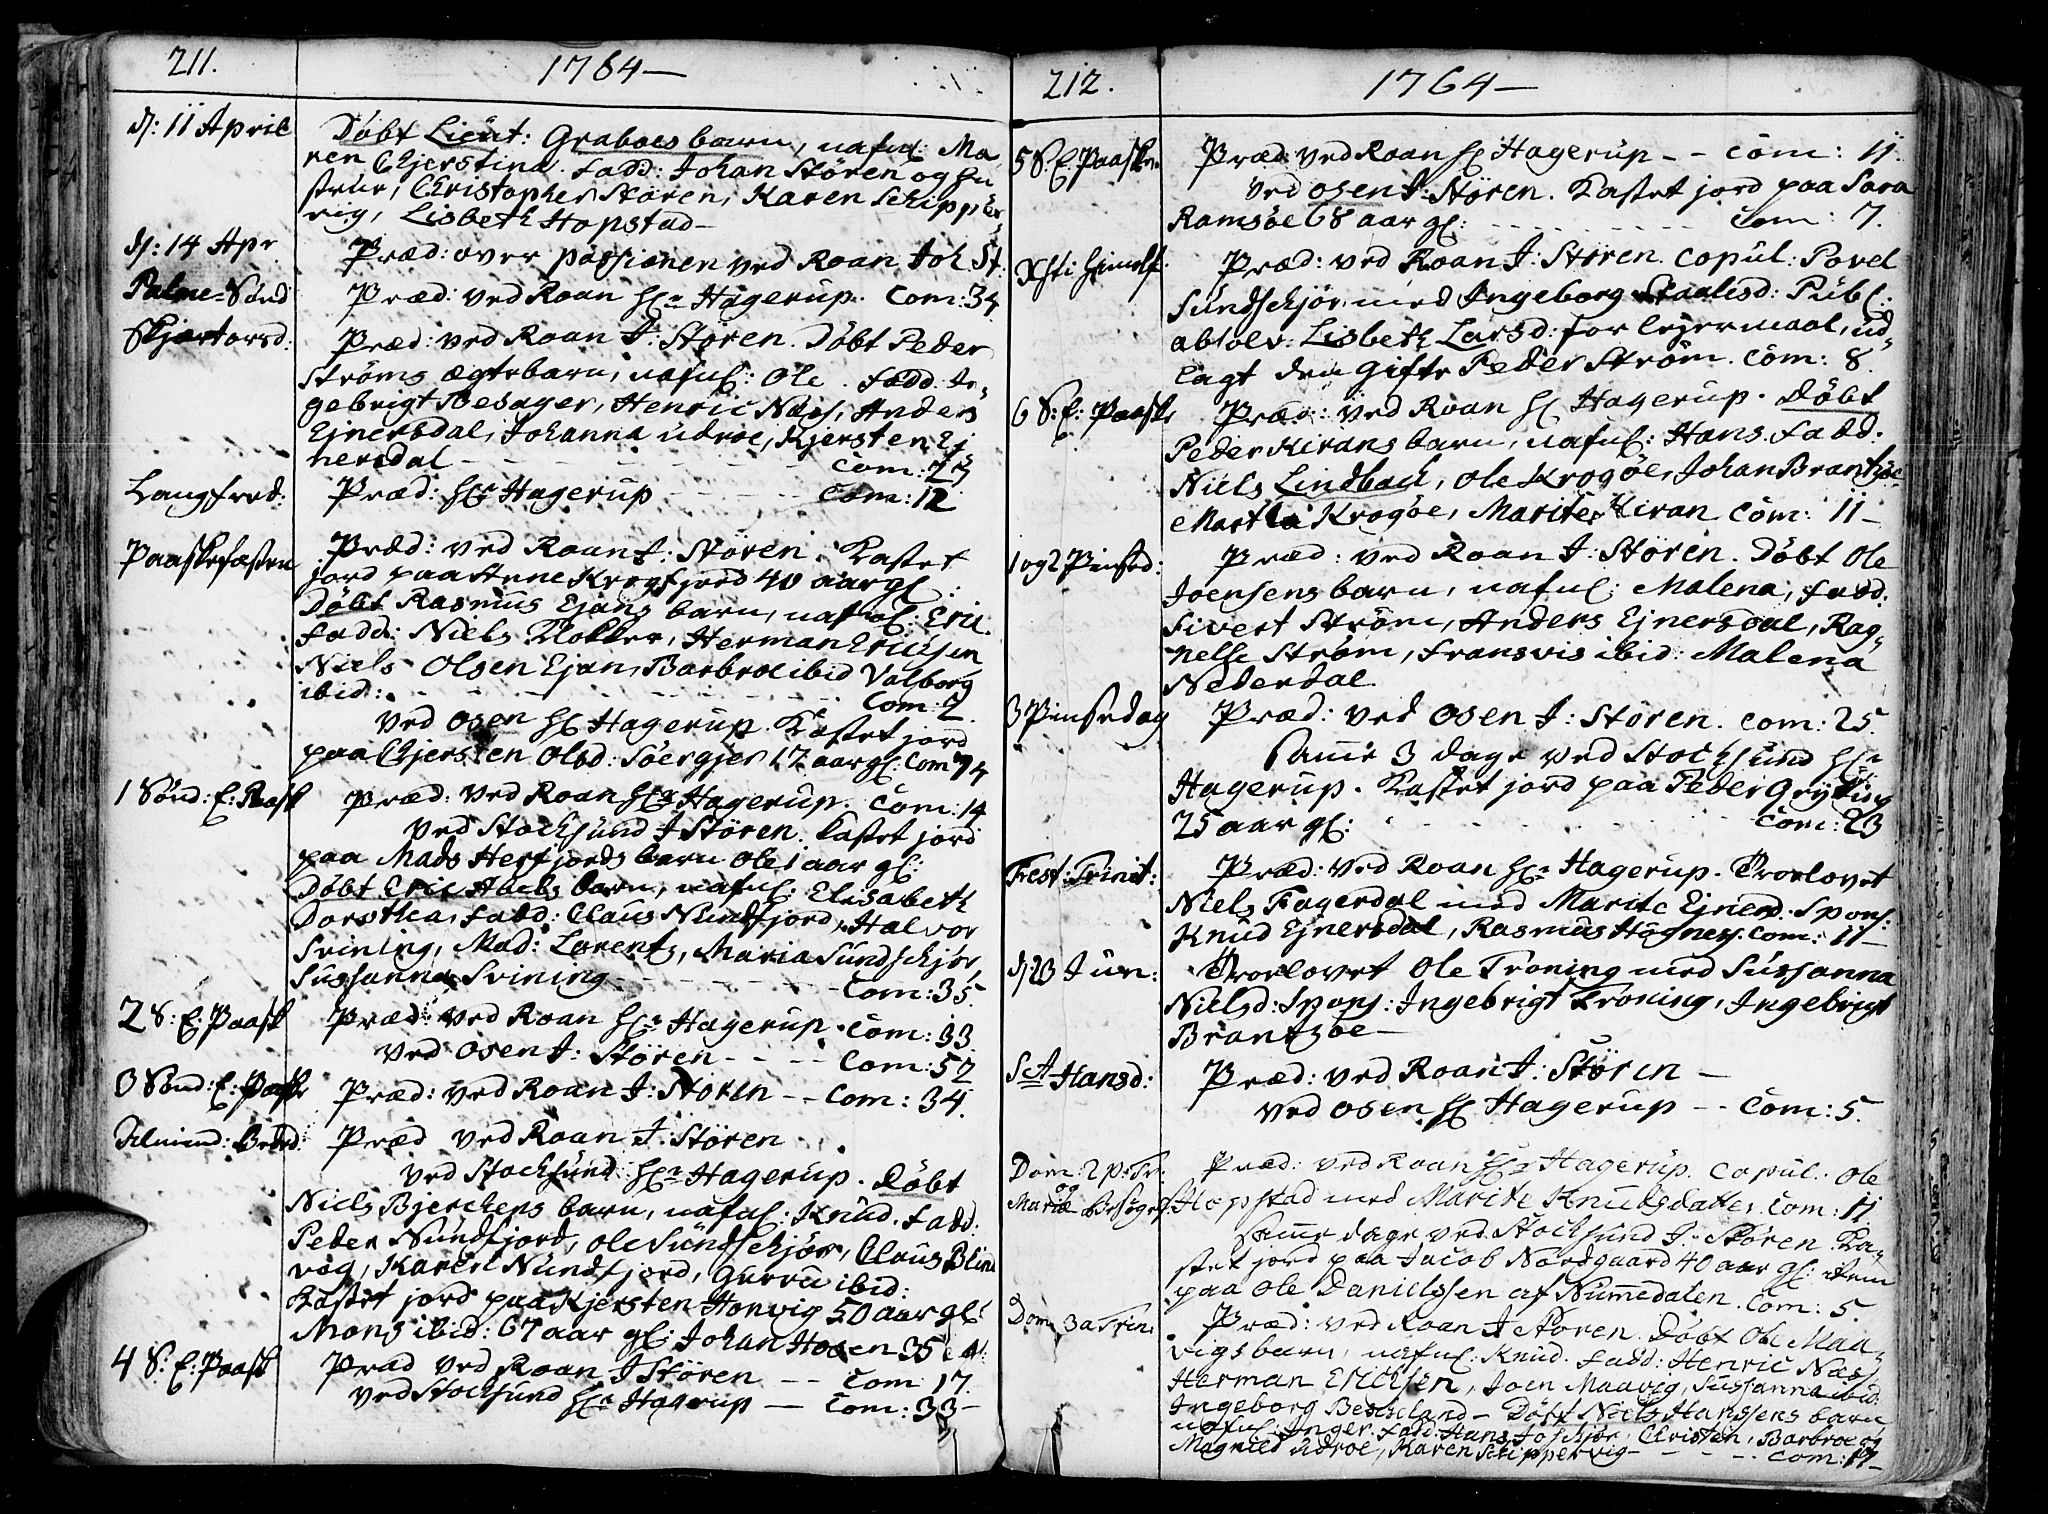 211.
1764—
d: 11 April
Døbt Lieut: Graboes barn, nafnl: Ma
ren Chjerstina. Fadd: Johan Stören og Hu
strue, Christopher Stören, Karen Schipper
vig, Lisbeth Hopstad—
d: 14 Apr.
Præd: over passionen ved Roan Joh St:
Palme-Sønd
Præd: ved Roan Hr Hagerup. Com: 34
Skjærtorsd:
Præd: ved Roan J: Stören. Døbt Peder
Ströms ægtebarn, nafnl: Ole. Fadd: In-
gebrigt Besager, Henric Næss, Anders
Ejnersdal, Johanna Udroe, Kjersten Ej
nersdal - - - Com: 23
Langfred:
Præd: Hr Hagerup - - - Com: 12
Paaskefæsten
Præd: ved Roan J: Stören. Kastet
jord paa Anne Krogfjord 40 aar gl:
Døbt Rasmus Ejans barn, nafnl: Eric.
Fadd: Niels Klokker, Herman Ericksen
Niels Olsen Ejan, Barbroe ibid Valborg
ibid: - - - Com: 2.
Ved Osen Hr Hagerup. Kastet jord
paa Chjersten Olsd: Söergjer 17 aar gl: Com 74
1 Sönd: E: Paask
Præd: ved Roan Hr Hagerup. Com: 14
Ved Stocksund J Stören. Kastet jord
paa Mads Herfjords barn Ole 1 aar gl:
Döbt Eric Abels barn, nafnl: Elisabeth
Dorothea, Fadd: Claus Nundfjord, Halvor
Svining, Mad: Lorentz, Maria Sundschjör,
Sussanna Svining - - - Com: 35.
2 S: E: Paask
Præd: ved Roan Hr Hagerup. Com: 33.
Ved Osen J: Stören - - Com: 52
3 Sönd: E: Paask
Præd: ved Roan J: Stören - - Com: 34.
Almind: Beded:
Præd ved Roan J: Stören.
Ved Stocksund Hr Hagerup. Døbt
Niels Bjerchens barn, nafnl: Knud. Fadd:
Peder Nundfjord, Ole Sundschjör, Claus Blind
vög, Karen Nundfjord, Gurru ibid:
Kastet jord paa Kjersten Honvig 50 aar gl:
Mons ibid: 67 aar gl: Johan Hosen 35
4 S: E: Paask
Præd ved Roan J Stören - - Com 17.
Ved Stocksund Hr Hagerup — Com: 33—
212.
1764—
5 S. E. Paaske
Præd: ved Roan Hr Hagerup - - Com: 11.
Ved Osen J: Stören. Kastet jord paa Sara
Ramsöe 68 aar gl: - - - Com: 7.
Xsti Himelf.
Præd: ved Roan J: Stören. Copul: Povel
Sundschjör med Ingeborg Staalesd: Publ:
absolv: Lisbeth Larsd: for lejermaal, ud-
lagt den gifte Peder Ström. Com: 8.
6 S: E: Paaske
Præd: ved Roan Hr Hagerup. Döbt
Peder Kirans barn, nafnl: Hans. Fadd:
Niels Lindbach, Ole Krogöe, Johan Brantzöe
Martha Krogöe, Marite Kiran. Com: 11—
1 og 2 Pinsed:
Præd: ved Roan J: Stören. Døbt Ole
Joensens barn, nafnl: Malena, Fadd:
Sivert Ström, Anders Ejnersdal, Rag-
nelle Ström, Fransvis ibid: Malena
Nederdal.
3 Pinsedag
Præd: ved Osen J: Stören. Com: 25.
Same 3 dage ved Stocksund Hr
Hagerup. Kastet jord paa Peder Gryting
25 aar gl: - - - Com: 23
Fest: Trinit:
Præd: ved Roan Hr Hagerup. Trolovet
Niels Fagerdal med Marite Ejnersd. Spons:
Knud Ejnersdal, Rasmus Hognes. Com: 11—
d: 23 Juni:
Trolovet Ole Troning med Sussanna
Nielsd: Spons: Ingebrigt Troning, Ingebrigt
Brantzöe—
Sct Hansd:
Præd: ved Roan J: Stören —
Ved Osen Hr Hagerup - - Com: 5.
Dom: 2 p: Tr:
og
Mariæ Besøgels
Præd: ved Roan Hr Hagerup. Copul. Ole
Hopstad med Marite Knudsdatter. Com: 11
Same dage ved Stocksund J. Stören. Ka-
stet jord paa Jacob Nordgaard 40 aar gl: item
paa Ole Danielssen af Nummedalen. Com: 5.
Dom 3 a Trin:
Præd: ved Roan J Stören. Döbt Ole Maa-
vigs barn, nafnl: Knud. Fadd: Henric Næss,
Herman Ericksen, Joen Maavig, Sussanna ibid:
Ingeborg Bescheland - Døbt Niels Hanssens barn
nafnl: Inger. Fadd: Hans Johschjör, Christen, Barbroe og
Magnild Udroe, Karen Schippervig - - - Com: 17—